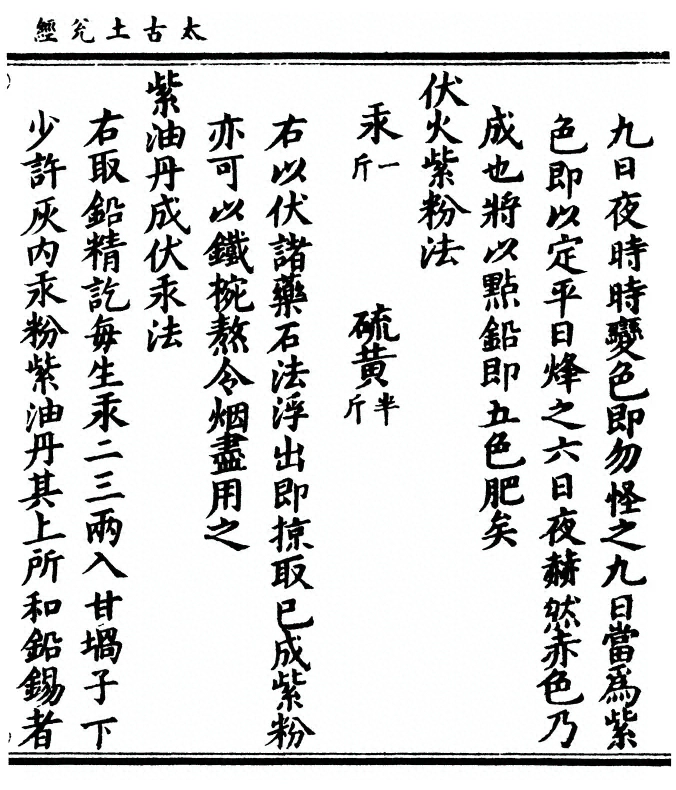 太古土兊經
九日夜時時變色即勿怪之九日當爲紫
色即以定平日烽之六日夜赫然赤色乃
成也將以點鉛即五色肥矣
伏火紫粉法
汞一斤　硫黃半斤
右以伏諸藥石法浮出即掠取已成紫粉
亦可以鐵椀熬令烟盡用之
紫油丹成伏汞法
右取鉛精訖每生汞二三兩入甘堝子下
少許灰內汞粉紫油丹其上所和鉛錫者